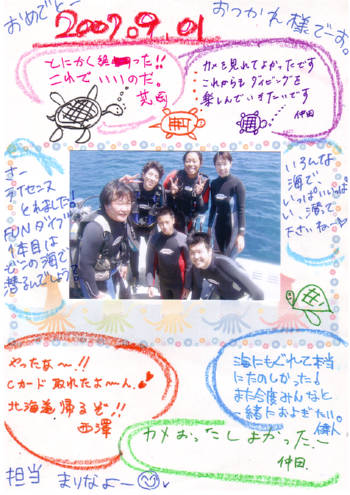 おめでとー
おつかれ様でーす。
2007.9.01
とにかく終わった!!
これでいいのだ。
カメを見れてよかったです
これからもダイビングを
楽しんでいきたいです
仲田
さー
ライセンス
とれました!
FUNダイブ
1本目は
どこの海で
潜るんでしょう?
いろんな
海で、
いっぱいいっぱい
い、潜って
下さいねー
やったなぁ〜!!
Cカード取れたよ〜ん
北海道帰るぞ!!
西澤
海にもぐれて本当
にたのしかった!
また今度みんなと
一緒におよぎたい。
カメおったしよかったー
仲田
担当
まりなよー